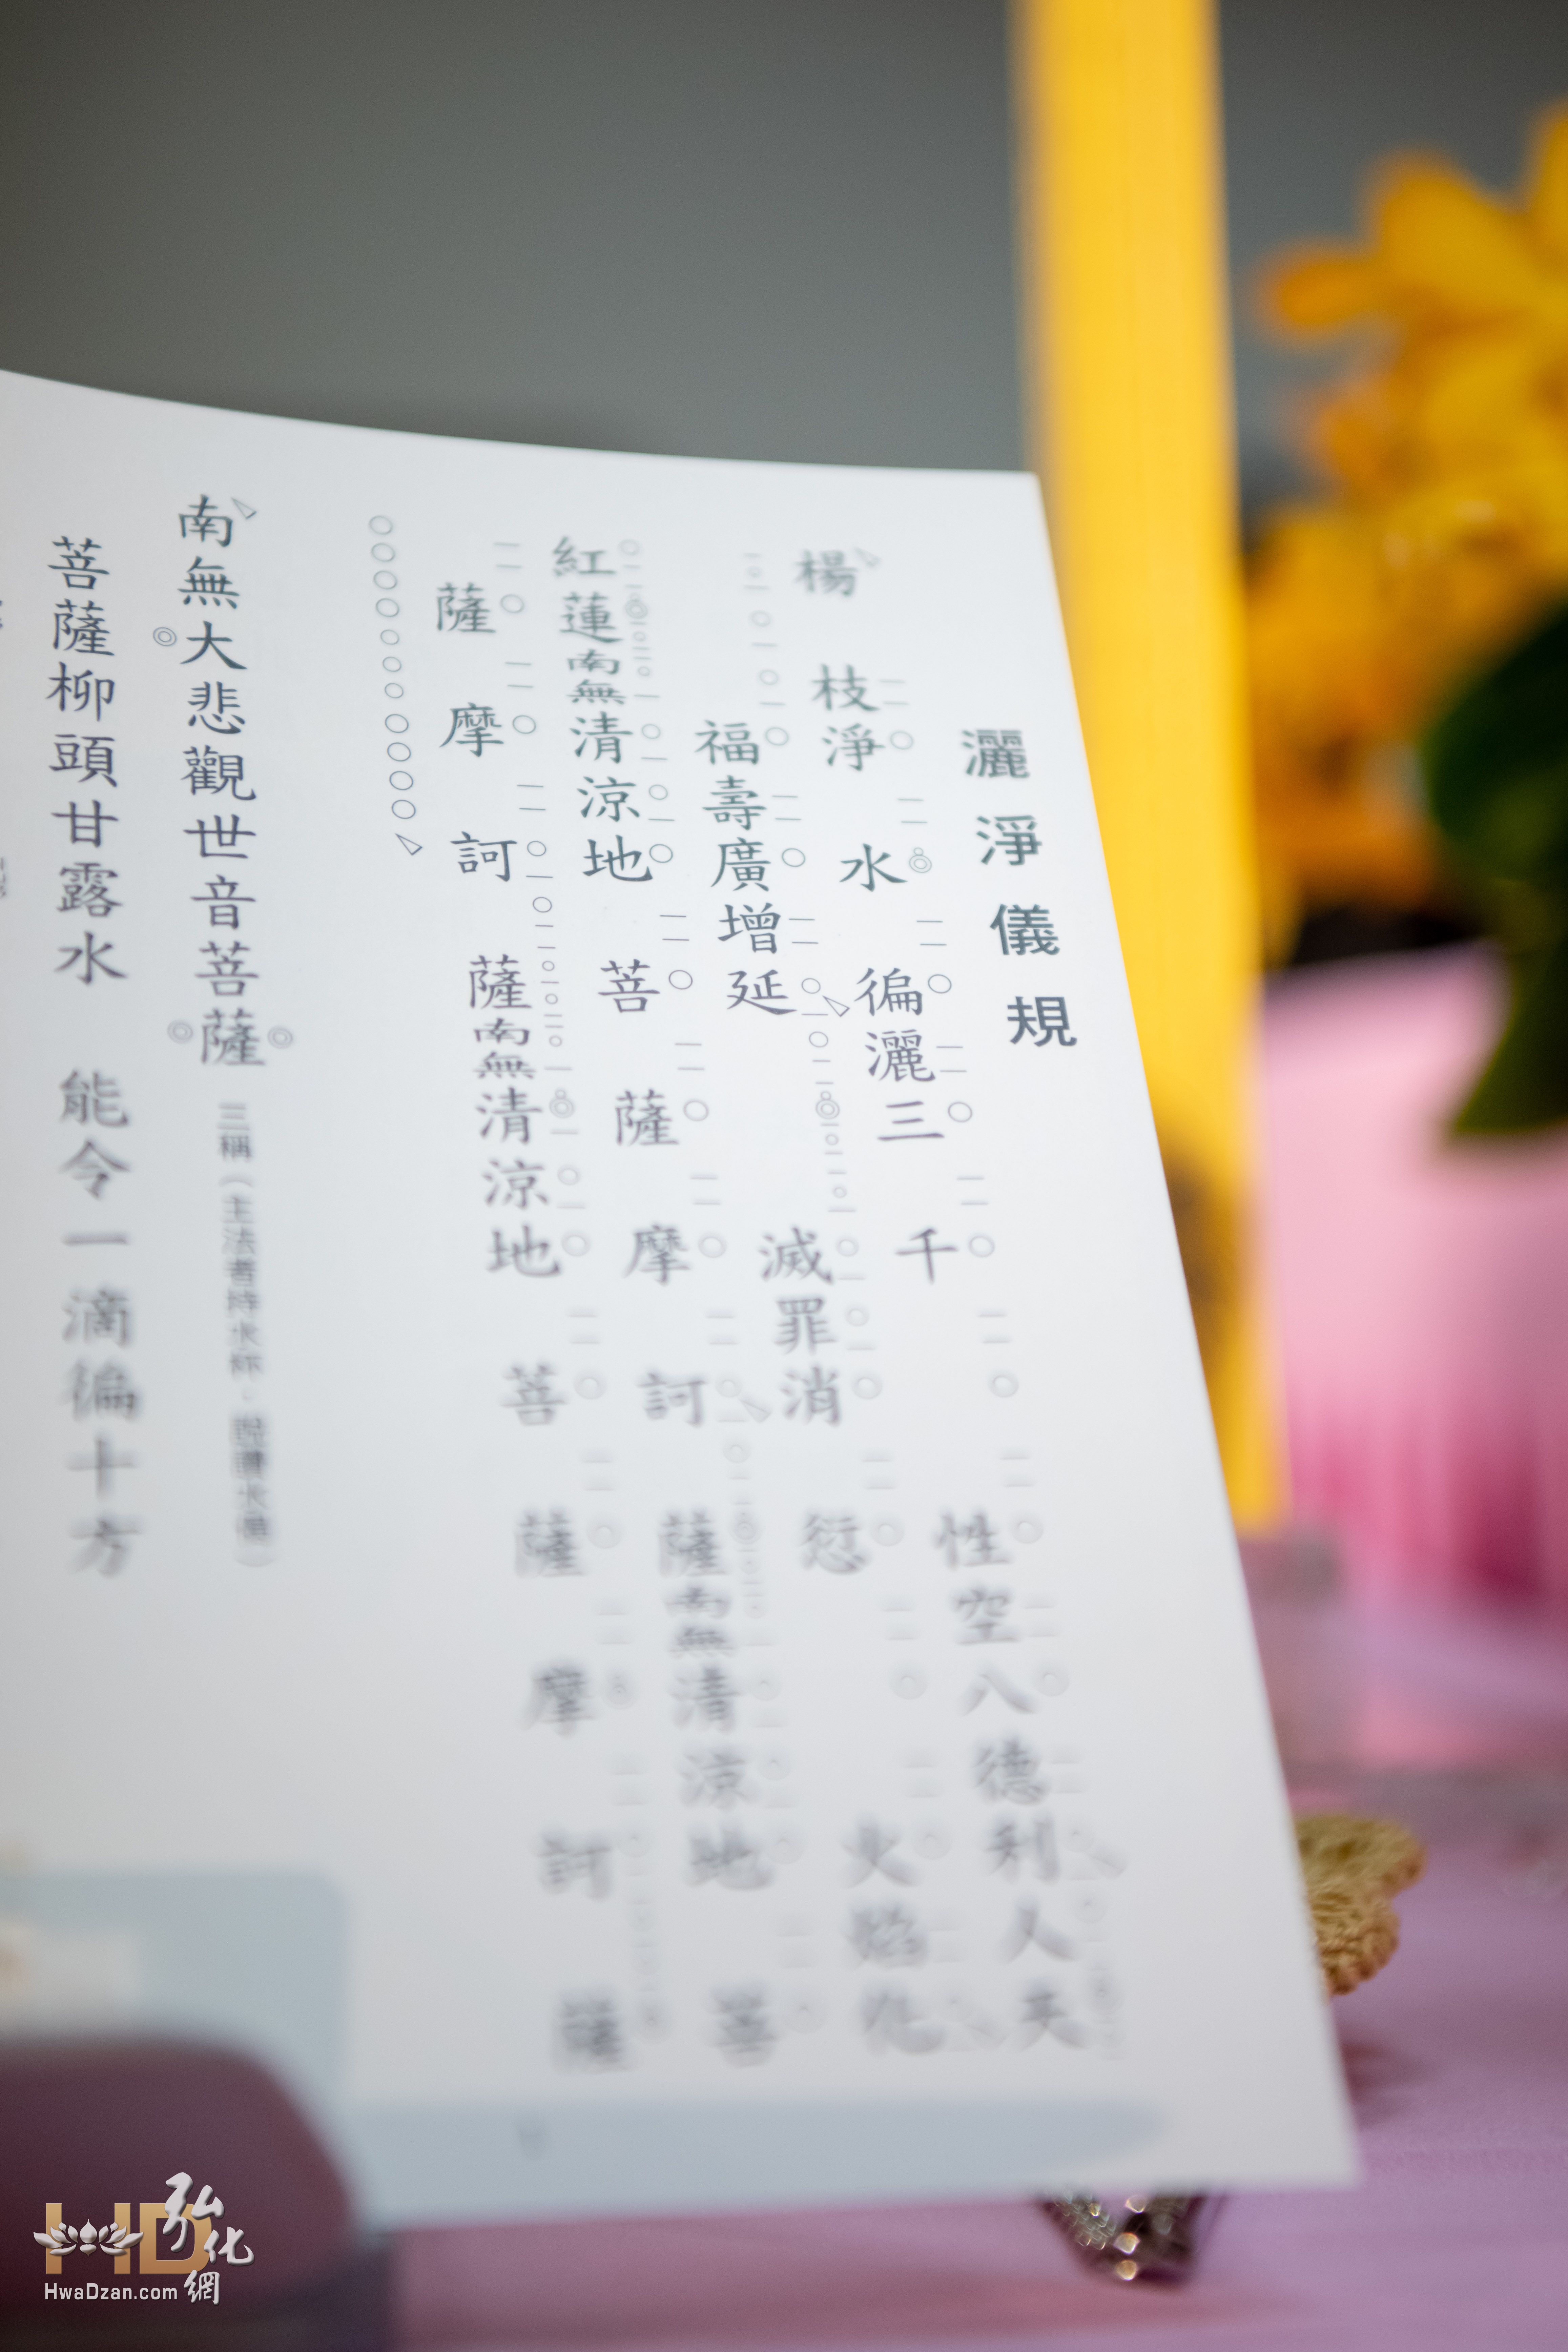 灑淨儀規
楊枝淨水 徧灑三千 性空八德利人天
福壽廣增延 滅罪消愆 火焰化
紅蓮南無清涼地 菩薩摩訶薩南無清涼地 菩
薩摩訶薩南無清涼地 菩薩摩訶薩
南無大悲觀世音菩薩 三稱（主法者持水杯，說讚水偈）
菩薩柳頭甘露水 能令一滴徧十方
HD弘化網
HwaDzan.com